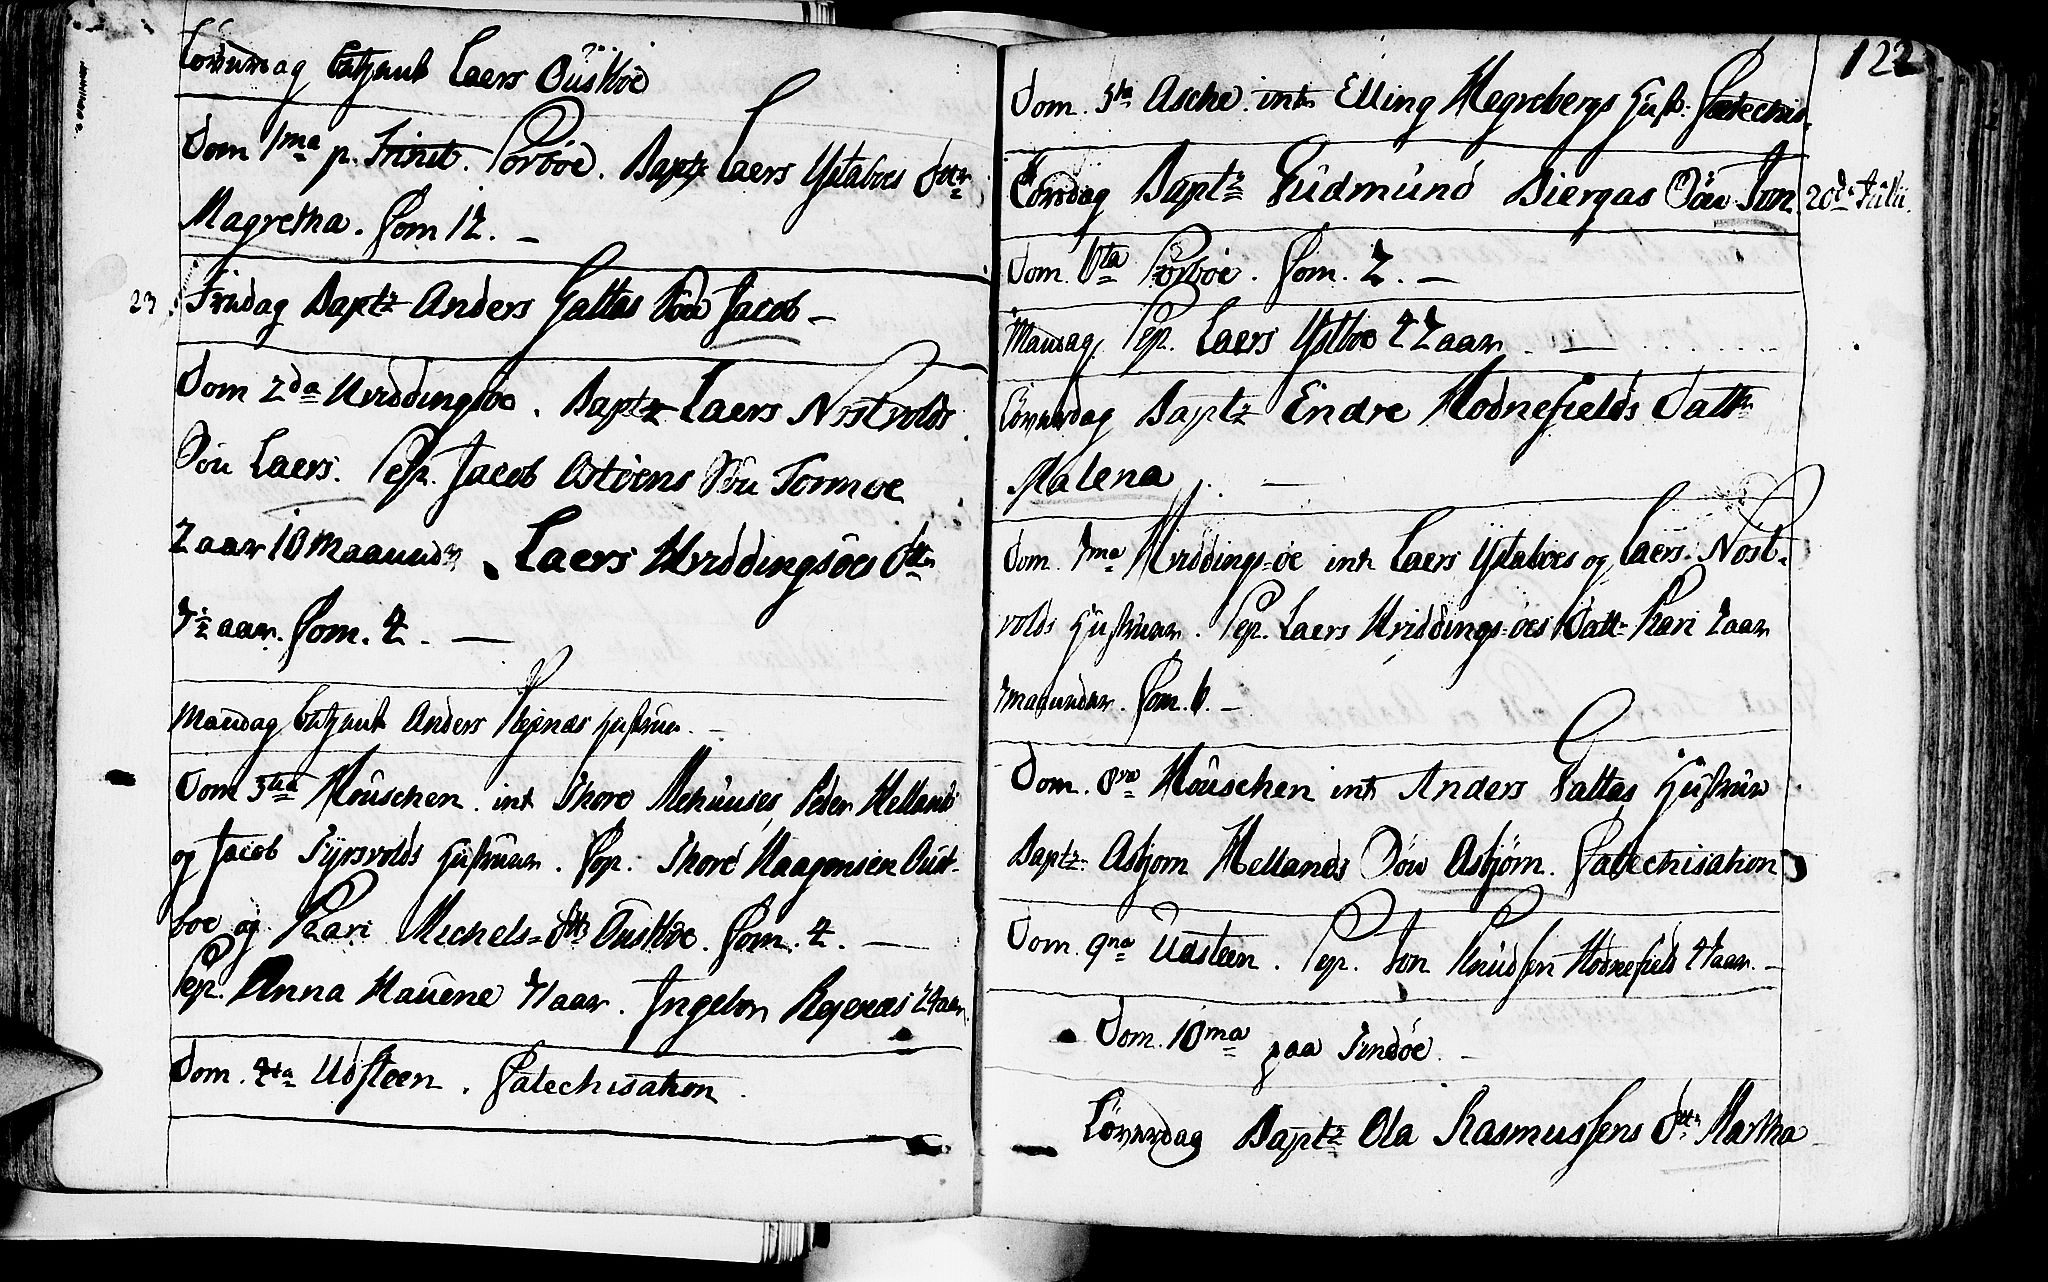 Löverdag betient Laers Ousköe
Dom 1ma p. Trinit. Sörböe. Bapt. Laers Ystaböes Dttr
Magretha. Com 12. —
23 Fridag Bapt. Anders Galtas Sön Jacob —
Dom 2da Hviddingsöe. Bapt. Laers Nostvolds
Sön Laers. Sep. Jacob Sön Tormoe
2 aar 10 Maaneder. Laers Hviddingsöes Dttr
7½ aar. Com. 4. —
Mandag betient Anders Regnæs hustrue. —
Dom 3tia Mouschen. int. Thore Mehuuses, Peder Hellands
og Jacob hustruer. Cop. Thore Haagensen Oud-
böe og Kari Michels-dttr Ousköe. Com. 4. —
Sep. Anna Hauene 71 aar. Ingebor Regenæs 24 aar
Dom. 4ta Udsteen. Catechisation.
122
Dom. 5ta Aschc. int. Elling Hegrebergs hust. Catechis.
Torsdag Bapt. Gudmund Biergas Sön Jon. 20de Julii.
Dom. 6ta Sörböe. Com. 2. —
Mandag. Sep. Laers Ystböe 42 aar. —
Löverdag Bapt. Endre Hodnefields Datt.
Malena. —
Dom. 7ma Hviddings-öe int. Laers Ystaböes og Laers Nost-
volds hustruer. Sep. Laers Hviddings-öes Datt. Kari 2 aar
7 maaneder. Com. 6. —
Dom. 8va Mouschen int. Anders Galtas hustrue
Bapt. Asbjorn Hellands Sön Asbjörn. Catechisation
Dom. 9na Udsteen. Sep. Jon Knudsen Hodnefield 47 aar. —
Dom. 10ma paa Findöe. —
Löverdag Bapt. Ola Rasmussens Dttr Martha